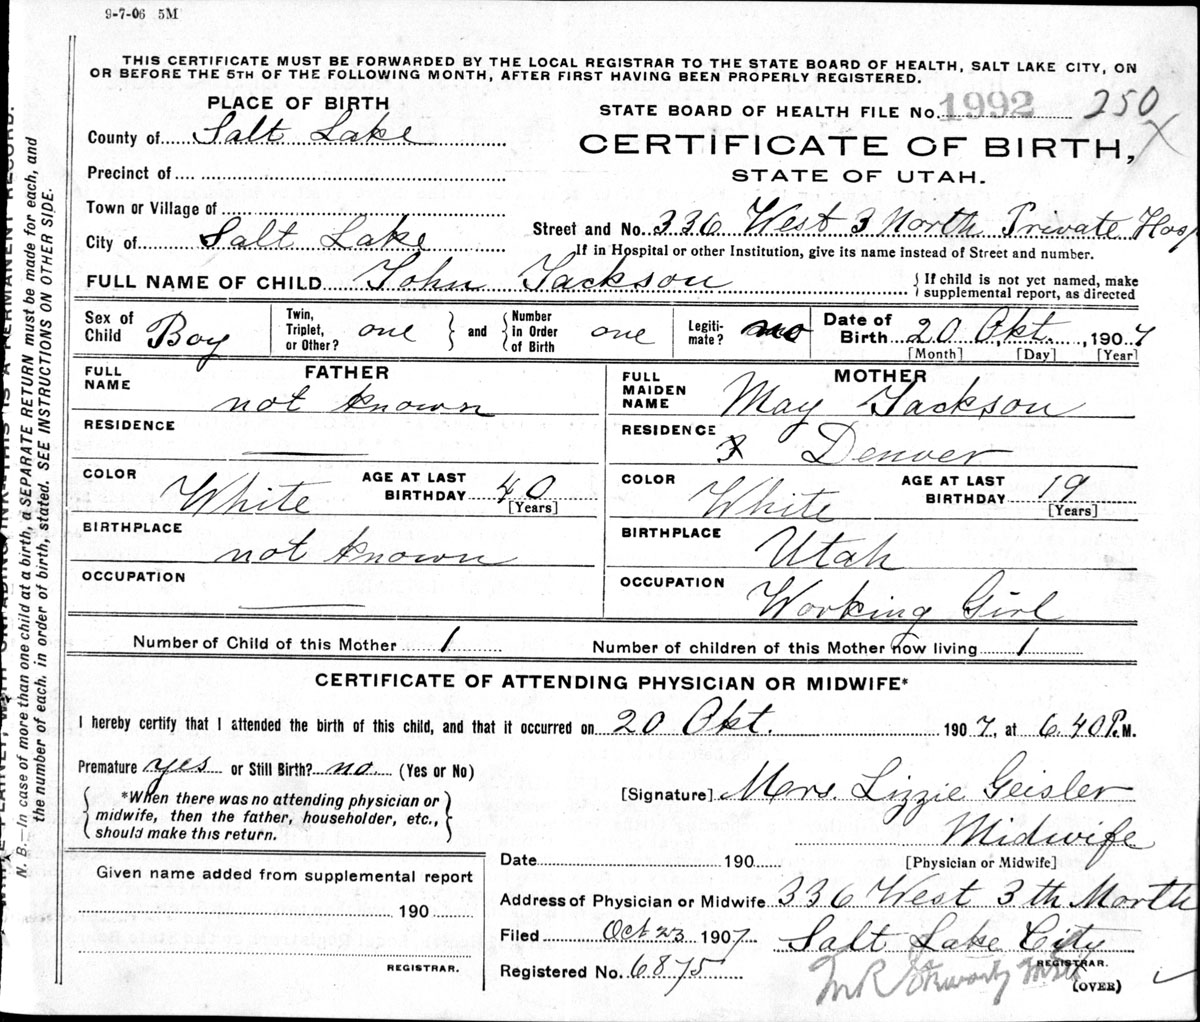 9-7-06 5M
THIS CERTIFICATE MUST BE FORWARDED BY THE LOCAL REGISTRAR TO THE STATE BOARD OF HEALTH, SALT LAKE CITY, ON
OR BEFORE THE 5TH OF THE FOLLOWING MONTH, AFTER FIRST HAVING BEEN PROPERLY REGISTERED.
PLACE OF BIRTH
STATE BOARD OF HEALTH FILE No. 1992 250 X
County of Salt Lake
CERTIFICATE OF BIRTH,
STATE OF UTAH.
Precinct of
Town or Village of
City of Salt Lake
Street and No. 336 West 3 North Private Hosp
If in Hospital or other Institution, give its name instead of Street and number.
FULL NAME OF CHILD John Jackson
If child is not yet named, make
supplemental report, as directed
Sex of
Child Boy
Twin,
Triplet,
or Other? one
and
Number
in Order
of Birth one
Legiti-
mate? no
Date of
Birth 20 Okt. , 1907
[Month] [Day] [Year]
FATHER
FULL
NAME
not known
RESIDENCE
COLOR White
AGE AT LAST
BIRTHDAY 40
[Years]
BIRTHPLACE
not known
OCCUPATION
MOTHER
FULL
MAIDEN
NAME May Jackson
RESIDENCE
Denver
COLOR White
AGE AT LAST
BIRTHDAY 19
[Years]
BIRTHPLACE
Utah
OCCUPATION
Working Girl
Number of Child of this Mother 1
Number of children of this Mother now living 1
CERTIFICATE OF ATTENDING PHYSICIAN OR MIDWIFE*
I hereby certify that I attended the birth of this child, and that it occurred on 20 Okt. 1907, at 6.40 P.M.
Premature yes or Still Birth? no. (Yes or No)
*When there was no attending physician or
midwife, then the father, householder, etc.,
should make this return.
[Signature] Mrs. Lizzie Geisler
Midwife
[Physician or Midwife]
Date 190
Given name added from supplemental report
190
REGISTRAR.
Address of Physician or Midwife 336 West 3th North
Salt Lake City
Filed Oct 23 1907
REGISTRAR.
Registered No. 6875
(OVER)
N. B.—In case of more than one child at a birth, a SEPARATE RETURN must be made for each, and
the number of each, in order of birth, stated. SEE INSTRUCTIONS ON OTHER SIDE.
THIS IS A PERMANENT RECORD.